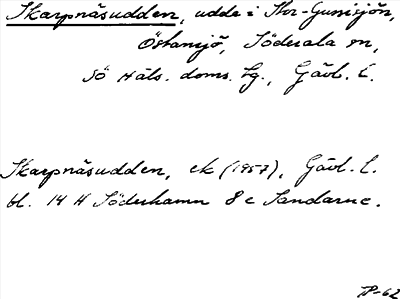 Skarpnäsudden, udde i Stor-Gussisjön,
Östansjö, Söderala sn,
Sö Häls. doms. tg., Gävl. l.
Skarpnäsudden, ek (1957), Gävl. l.
bl. 14 H Söderhamn 8 c Sandarne.
TP-62